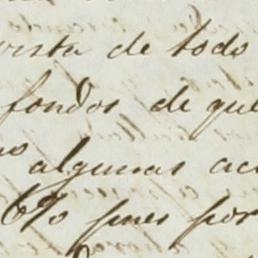 vista de todo
fondos de que
algunas ac
6% pues por